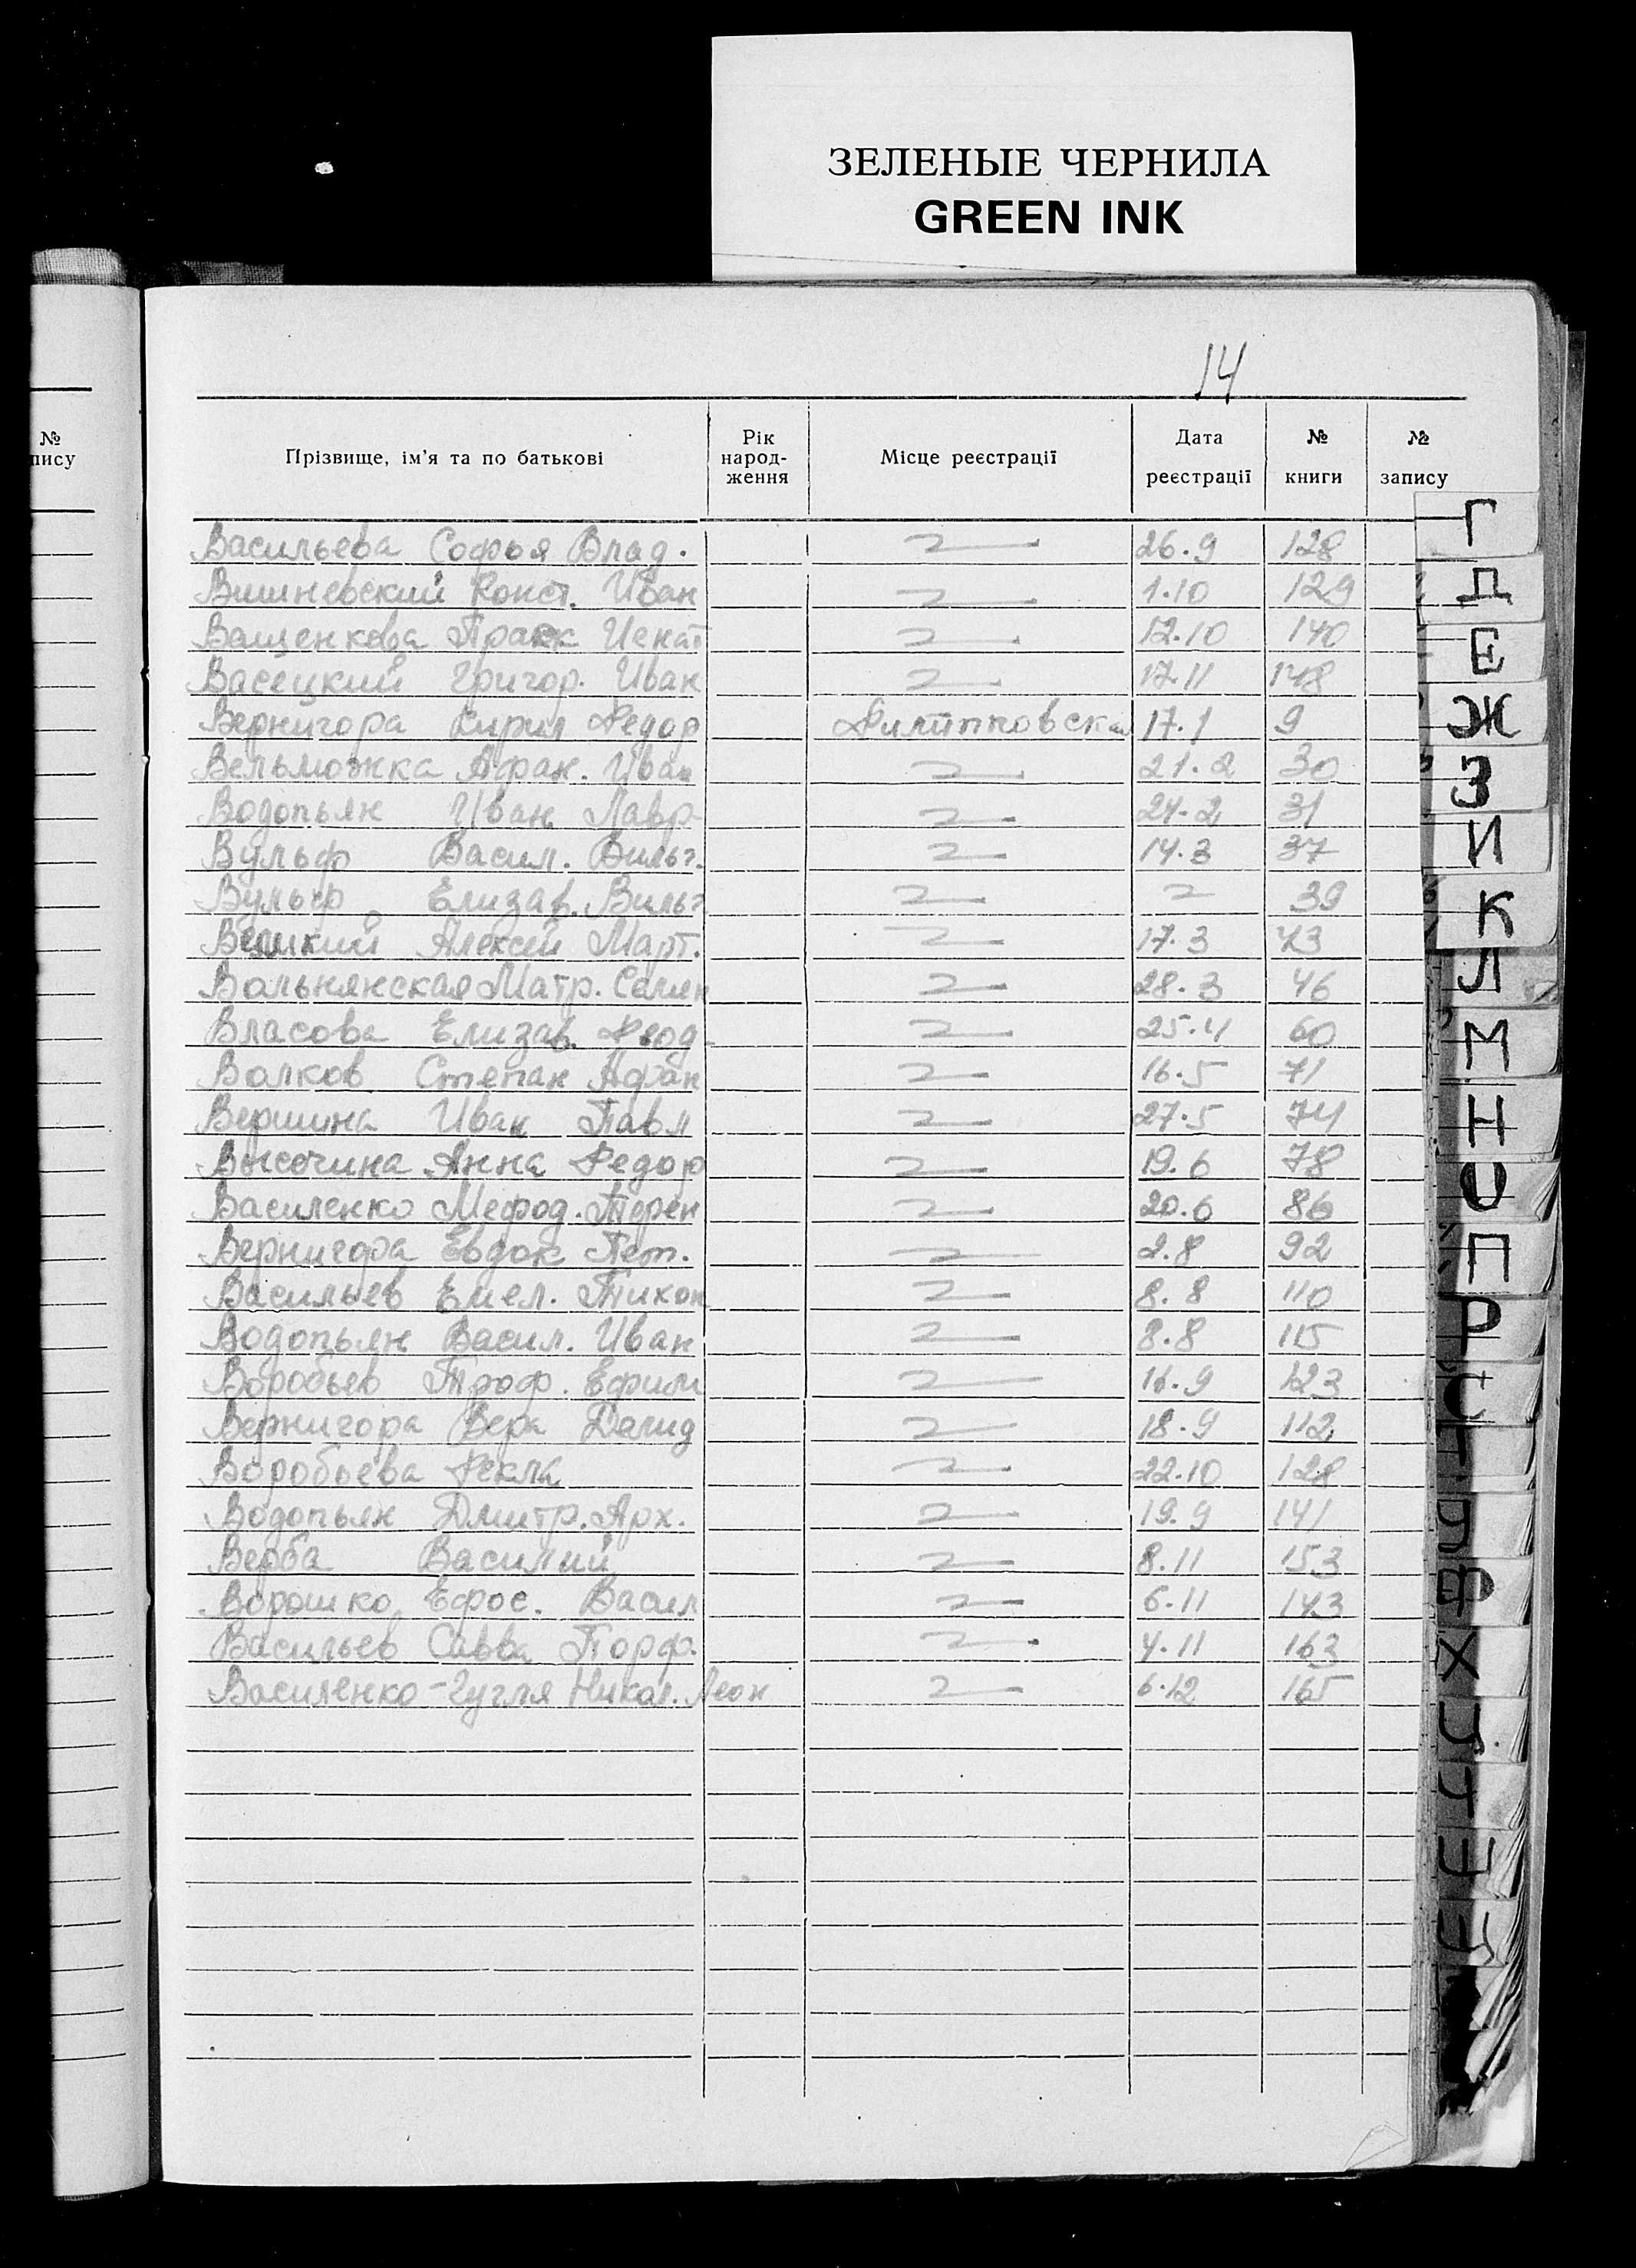 ЗЕЛЕНЫЕ ЧЕРНИЛА
GREEN INK
14
№
пису
Прізвище, ім'я та по батькові Рік народ- ження Місце реєстрації Дата реєстрації № книги № запису
Васильева Софья Влад. 26.9 128
Вишневский Конст. Иван 1.10 129
Ващенкова 12.10 140
Васецкий Григор. Иван 17.11 148
Вернигора Кирил Федор Филипповская 17.1 9
Вельможка Афан. Иван 21.2 30
Водопьян Иван Лавр. 24.2 31
Вульф Васил. Вильг. 14.3 37
Вульф Елизав. Вильг 39
Великий Алексей Март. 17.3 43
Вольнянская Матр. Семен 28.3 46
Власова Елизав. Феод. 25.4 60
Волков Степан Афан 16.5 71
Вершина Иван Павл 27.5 74
Высочина Анна Федор 19.6 78
Василенко Мефод. 20.6 86
Вернигора Евдок Пет. 2.8 92
Васильев Емел. Тихон 8.8 110
Водопьян Васил. Иван 8.8 115
Воробьев Троф. Ефим 16.9 123
Вернигора Вера Демид 18.9 112
Воробьева Фекла 22.10 128
Водопьян Дмитр. Арх. 19.9 141
Верба Василий 8.11 153
Ворошко Ефрос. Васил 6.11 143
Васильев Савва Порф. 4.11 163
Василенко-Гугля Никол. Леон 6.12 165
Г
Д
Е
Ж
З
И
К
Л
М
Н
О
П
Р
С
Т
У
Ф
Х
Ц
Ч